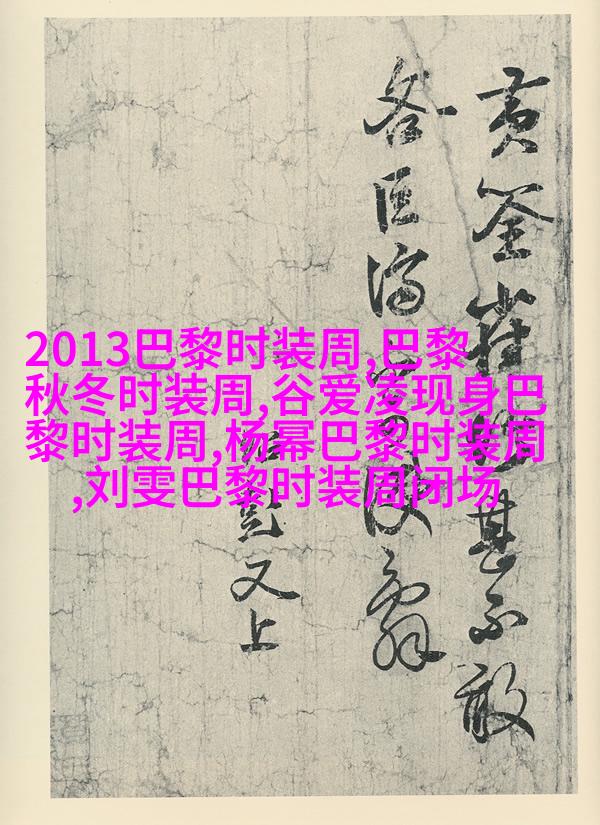 2013巴黎时装周,巴黎
秋冬时装周,谷爱凌现身巴
黎时装周,杨幂巴黎时装周
,刘雯巴黎时装周闭场
黄筌雀甚不敢
吝巨濟辭
彭又上